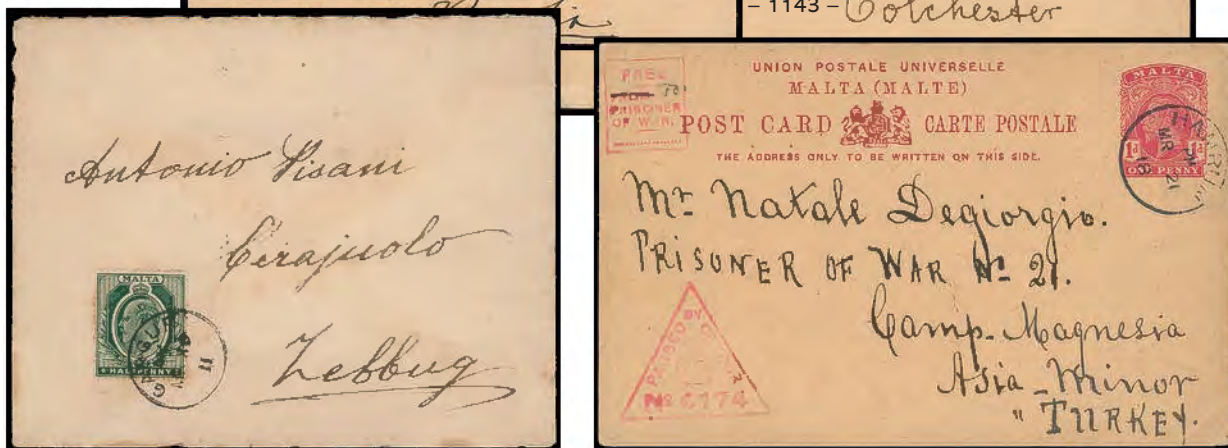 – 1143 –
Colchester
Antonio Pisani
Cerajuolo
Zebbug
MALTA
HALFPENNY
11
FREE
FROM TO
PRISONER
OF WAR.
UNION POSTALE UNIVERSELLE
MALTA (MALTE)
POST CARD CARTE POSTALE
THE ADDRESS ONLY TO BE WRITTEN ON THIS SIDE.
MALTA
1d 1d
ONE PENNY
HAMRUN
PM
MR 21
18
Mr. Natale Degiorgio.
PRISONER OF WAR No 21.
Camp-Magnesia
Asia-Minor
" TURKEY.
PASSED BY CENSOR
No 6174